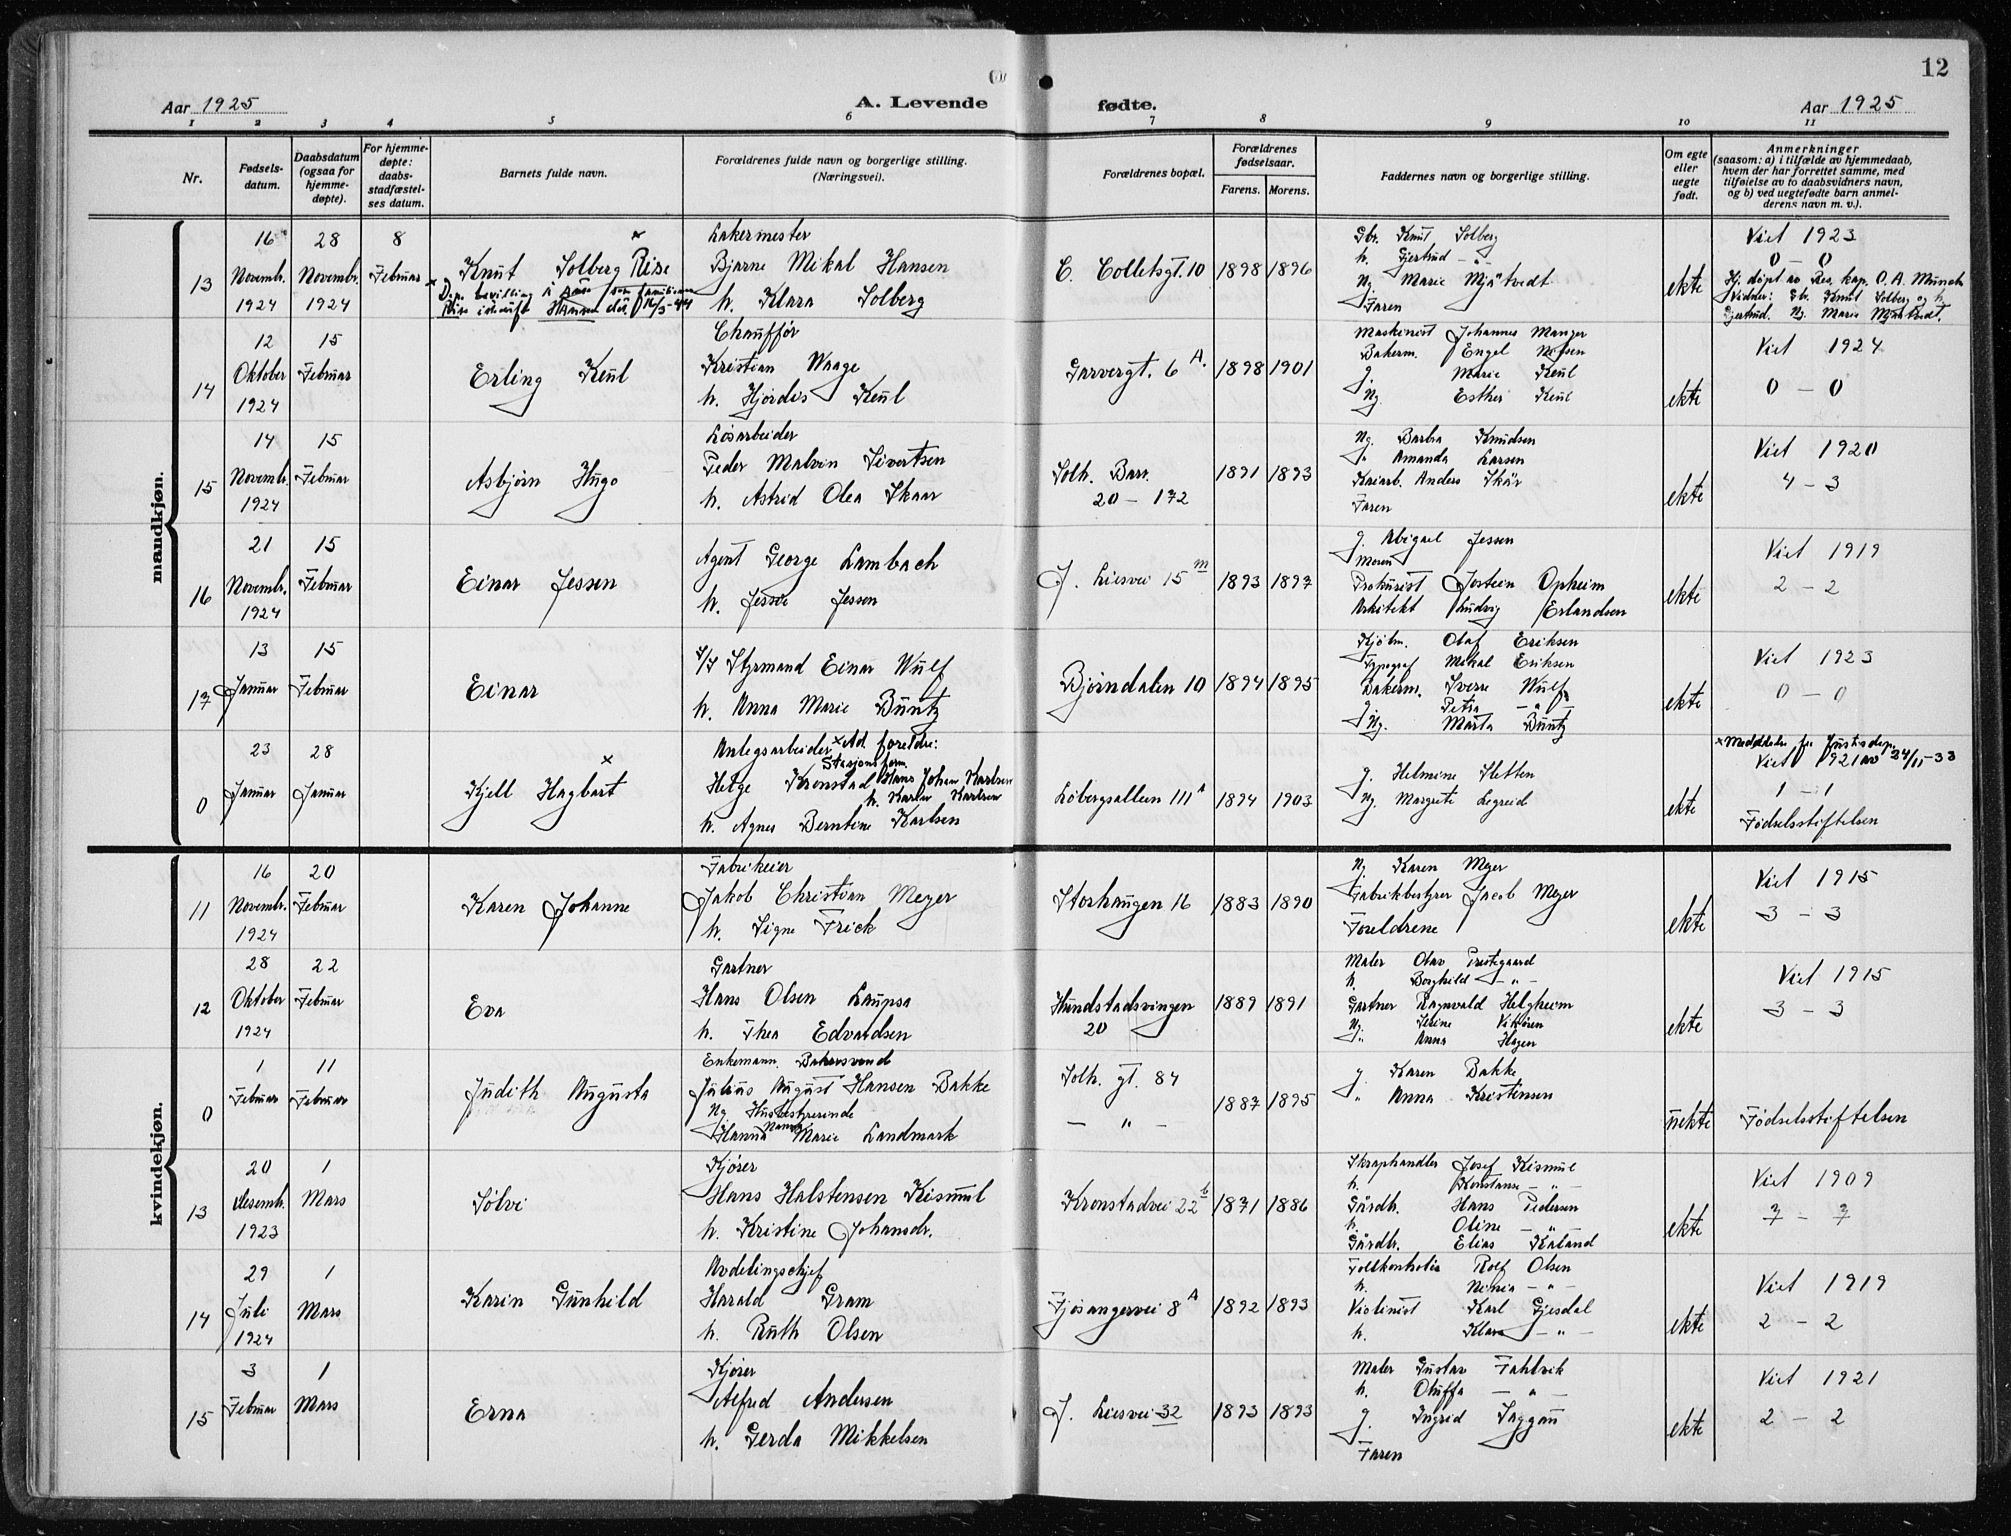 12
Aar 1925
A. Levende
fødte.
Aar 1925
1 2 3 4 5 6 7 8 9 10 11
Nr.
Fødsels-
datum.
Daabsdatum
(ogsaa for
hjemme-
døpte).
For hjemme-
døpte:
daabs-
stadfæstel-
ses datum.
Barnets fulde navn.
Forældrenes fulde navn og borgerlige stilling.
(Næringsvei).
Forældrenes bopæl.
Forældrenes
fødselsaar.
Farens. Morens.
Faddernes navn og borgerlige stilling.
Om egte
eller
uegte
født.
Anmerkninger
(saasom: a) i tilfælde av hjemmedaab,
hvem der har forrettet samme, med
tilføielse av to daabsvidners navn,
og b) ved uegtefødte barn anmel-
derens navn m. v.).
mandkjøn.
13
16 Novembr. 1924
28 Novembr. 1924
8 Februar
x
Knut Solberg Rise
Lakermester
Bjarne Mikal Hansen
h. Klara Solberg
C. Colletsgt. 10
1898 1896
Gbr. Knut Solberg
h. Gjertrud - " -
Ng. Marie Mjåtvedt
Faren
ekte
Viet 1923
0 - 0
Hj. døpt av Res. kap. O. A. Munch
Vidner: Gbr. Knut Solberg og h.
Gjertrud. Ng. Marie Mjåtvedt.
14
12 Oktober 1924
15 Februar
Erling Keul
Chauffør
Kristian Waage
h. Hjørdis Keul
Garvergt. 6 A.
1898 1901
Maskinist Johannes Manger
Bakerm. Engel Nilsen
g. Marie Keul
Ng. Esther Keul
ekte
Viet 1924
0 - 0
15
14 Novembr. 1924
15 Februar
Asbjørn Hugo
Løsarbeider
Peder Malvin Sivertsen
h. Astrid Olea Skaar
Solh. Barr.
20 - 172
1891 1893
Ng. Barbra Knudsen
" Amanda Larsen
Kaiarb. Anders Skår
Faren
ekte
Viet 1920
4 - 3
16
21 Novembr. 1924
15 Februar
Einar Jessen
Agent George Lambach
h. Jessie Jessen
J. Liesvei 15 m
1893 1897
g. Abigael Jessen
Moren
Prokurist Jostein Opheim
Arkitekt Ludvig Erlandsen
ekte
Viet 1919
2 - 2
17
13 Januar
15 Februar
Einar
Styrmand Einar Wulf
h. Anna Marie Buntz
Bjørndalen 10
1894 1895
Kjøbm. Olaf Eriksen
Typograf Mikal Eriksen
Bakerm. Sverre Wulf
g. Petra - " -
Ng. Marta Buntz
ekte
Viet 1923
0 - 0
0
23 Januar
28 Januar
x
Kjell Hagbart
Anlegsarbeider x Ad. foreldre:
Stasjonsform.
Helge Kronstad Hans Johan Karlsen
h. Karen Karlsen
h. Agnes Berntine Karlsen
Løbergsalleen 111 A
1894 1903
g. Helmine Sletten
Ng. Margrete Legreid
ekte
x Meddelelse fra Justisdep.
Viet 1921 av 24/11-33
1 - 1
Fødselsstiftelsen
kvindekjøn.
11
16 Novembr. 1924
20 Februar
Karen Johanne
Fabrikeier
Jakob Christian Meyer
h. Signe Frick
Storhaugen 16
1883 1890
Ng. Karen Meyer
Fabrikbestyrer Jacob Meyer
Foreldrene
ekte
Viet 1915
3 - 3
12
28 Oktober 1924
22 Februar
Eva
Gartner
Hans Olsen Laupsa
h. Thea Edvardsen
Hundstadsvingen
20
1889 1891
Maler Olav Prestegaard
h. Borghild - " -
Gartner Ragnvald Helgheim
Ng. Serine Vikøren
" Anna Hagen
ekte
Viet 1915
3 - 3
0
1 Februar
11 Februar
Judith Augusta
Enkemann. Bakersvend
Julius August Hansen Bakke
Ng Husbestyrerinde
Hanna Marie Landmark
Solh. gt. 84
- " -
1887 1895
g. Karen Bakke
" Anna Kristensen
uekte
Fødselsstiftelsen
13
20 desembr. 1923
1 Mars
Sølvi
Kjører
Hans Halstensen Kismul
h. Kristine Johansdr.
Kronstadvei 22 b
1871 1886
Skraphandler Josef Kismul
h. Konstanse - " -
Gårdb. Hans Pedersen
h. Oline - " -
Gårdbr. Elias Kaland
ekte
Viet 1909
7 - 7
14
29 Juli 1924
1 Mars
Karin Gunhild
Avdelingschef
Harald Gram
h. Ruth Olsen
Fjøsangervei 8 A
1892 1893
Tollkontrollør Rolf Olsen
h. Mimia - " -
Violinist Karl Gjesdal
h. Klara - " -
ekte
Viet 1919
2 - 2
15
3 Februar
1 Mars
Erna
Kjører
Alfred Andersen
h. Gerda Mikkelsen
J. Liesvei 32
1893 1893
Maler Gustav Fahlvik
h. Oluffa - " -
g. Ingrid Saggau
Faren
ekte
Viet 1921
2 - 2